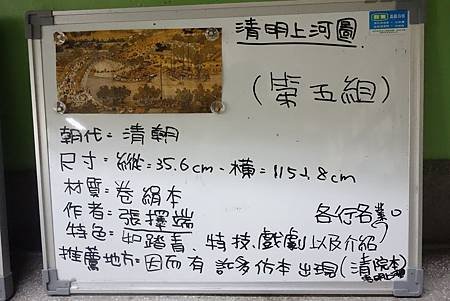 清明上河圖
(第五組)
朝代=清朝
尺寸=縱=35.6cm、橫=1152.8cm
材質=卷絹本
作者=張擇端
各行各業。
特色=如踏青、特技、戲劇以及介紹
推薦地方=因而有許多仿本出現(清院本
清明上河圖)